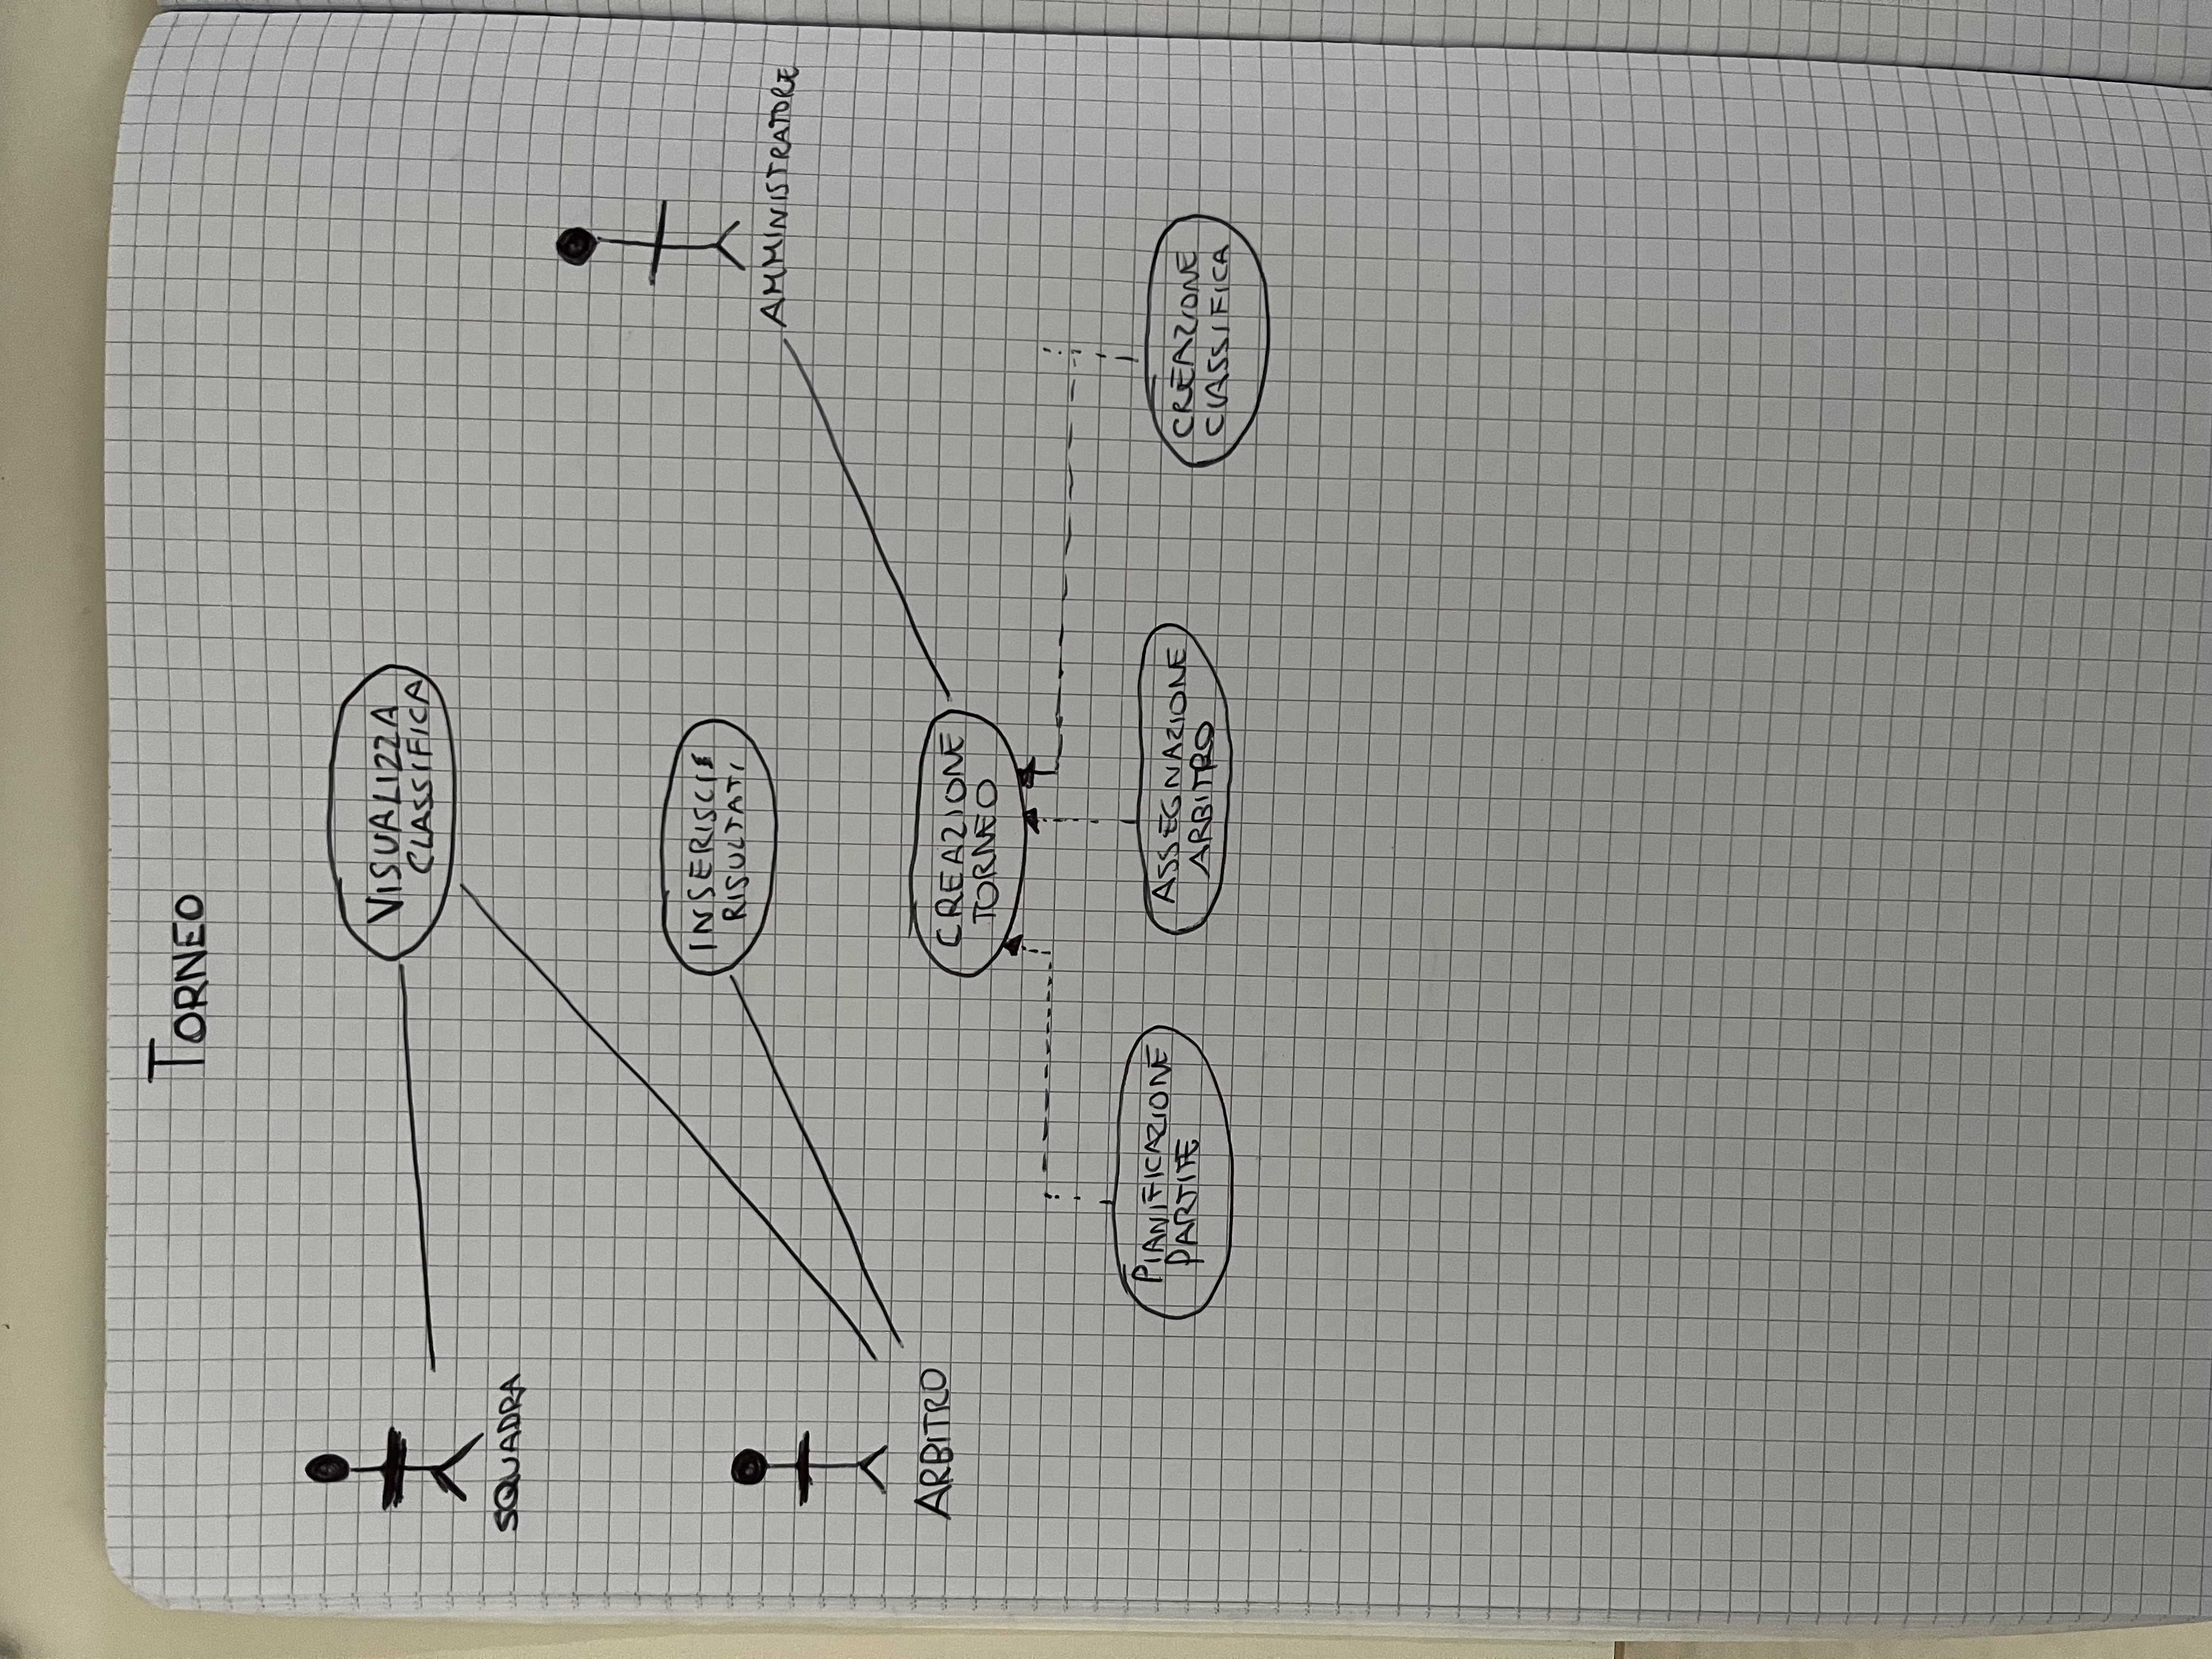 TORNEO
VISUALIZZA
CLASSIFICA
SQUADRA
INSERISCI
RISULTATI
AMMINISTRATORE
ARBITRO
CREAZIONE
TORNEO
PIANIFICAZIONE
PARTITE
ASSEGNAZIONE
ARBITRO
CREAZIONE
CLASSIFICA